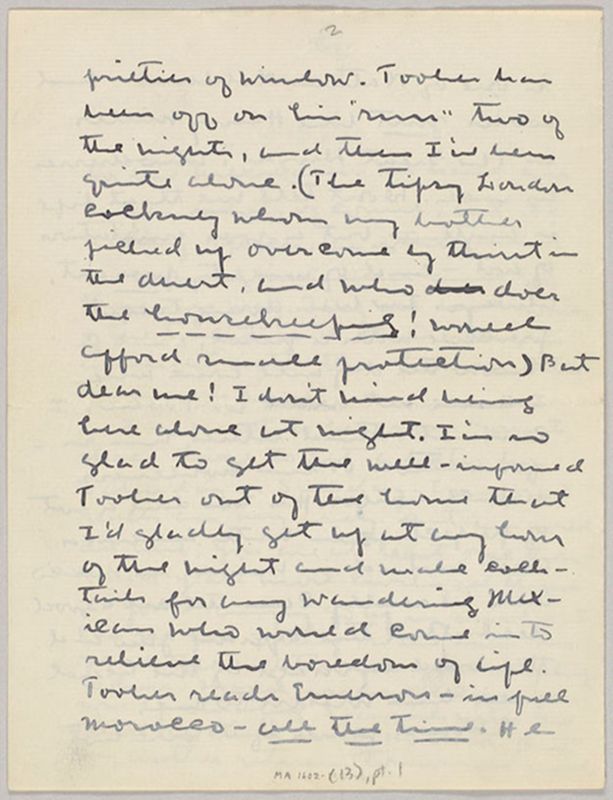 2
prieties of window. Tooker has
been off on his "run" two of
the nights, and then I've been
quite alone. (The tipsy London
cockney whom my brother
picked up overcome by thirst in
the desert, and who does
the housekeeping! would
afford small protection) But
dear me! I don't mind being
here alone at night. I'm so
glad to get the well-informed
Tooker out of the house that
I'd gladly get up at any hour
of the night and make cock-
tails for any wandering Mex-
ican who would come in to
relieve the boredom of life.
Tooker reads Emerson - in full
morocco - all the time. He
MA 1602. (13), pt. 1